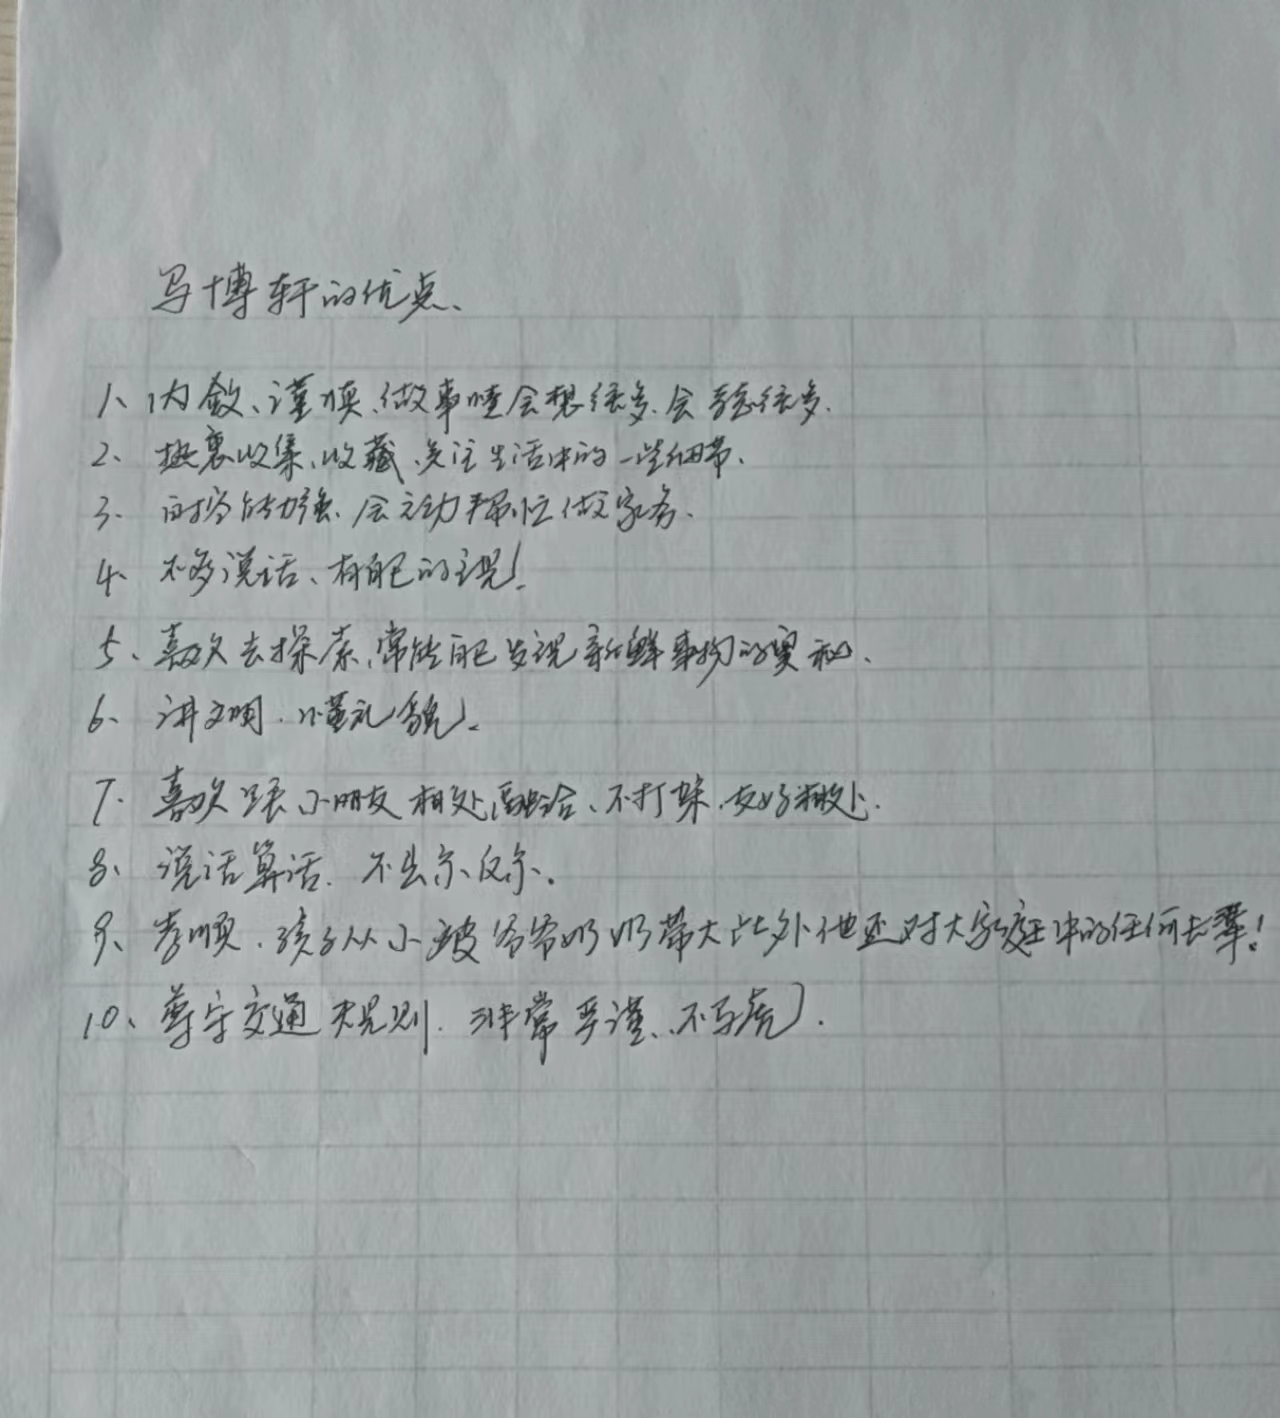 马博轩的优点、
1、内敛、谨慎、做事情会想很多、会考虑很多.
2、热衷收集、收藏、关注生活中的一些细节、
3、自控能力强、会主动帮忙做家务.
4、不多说话、有自己的主见!
5、喜欢去探索,常能自己发现新鲜事物的奥秘、
6、讲文明.懂礼貌!
7.喜欢跟小朋友相处融洽、不打架.友好相处.
8、说话算话.不出尔反尔。
9、孝顺.孩子从小被爷爷奶奶带大此外他还对大家庭中的任何长辈!
10、尊守交通规则.非常严谨、不马虎).